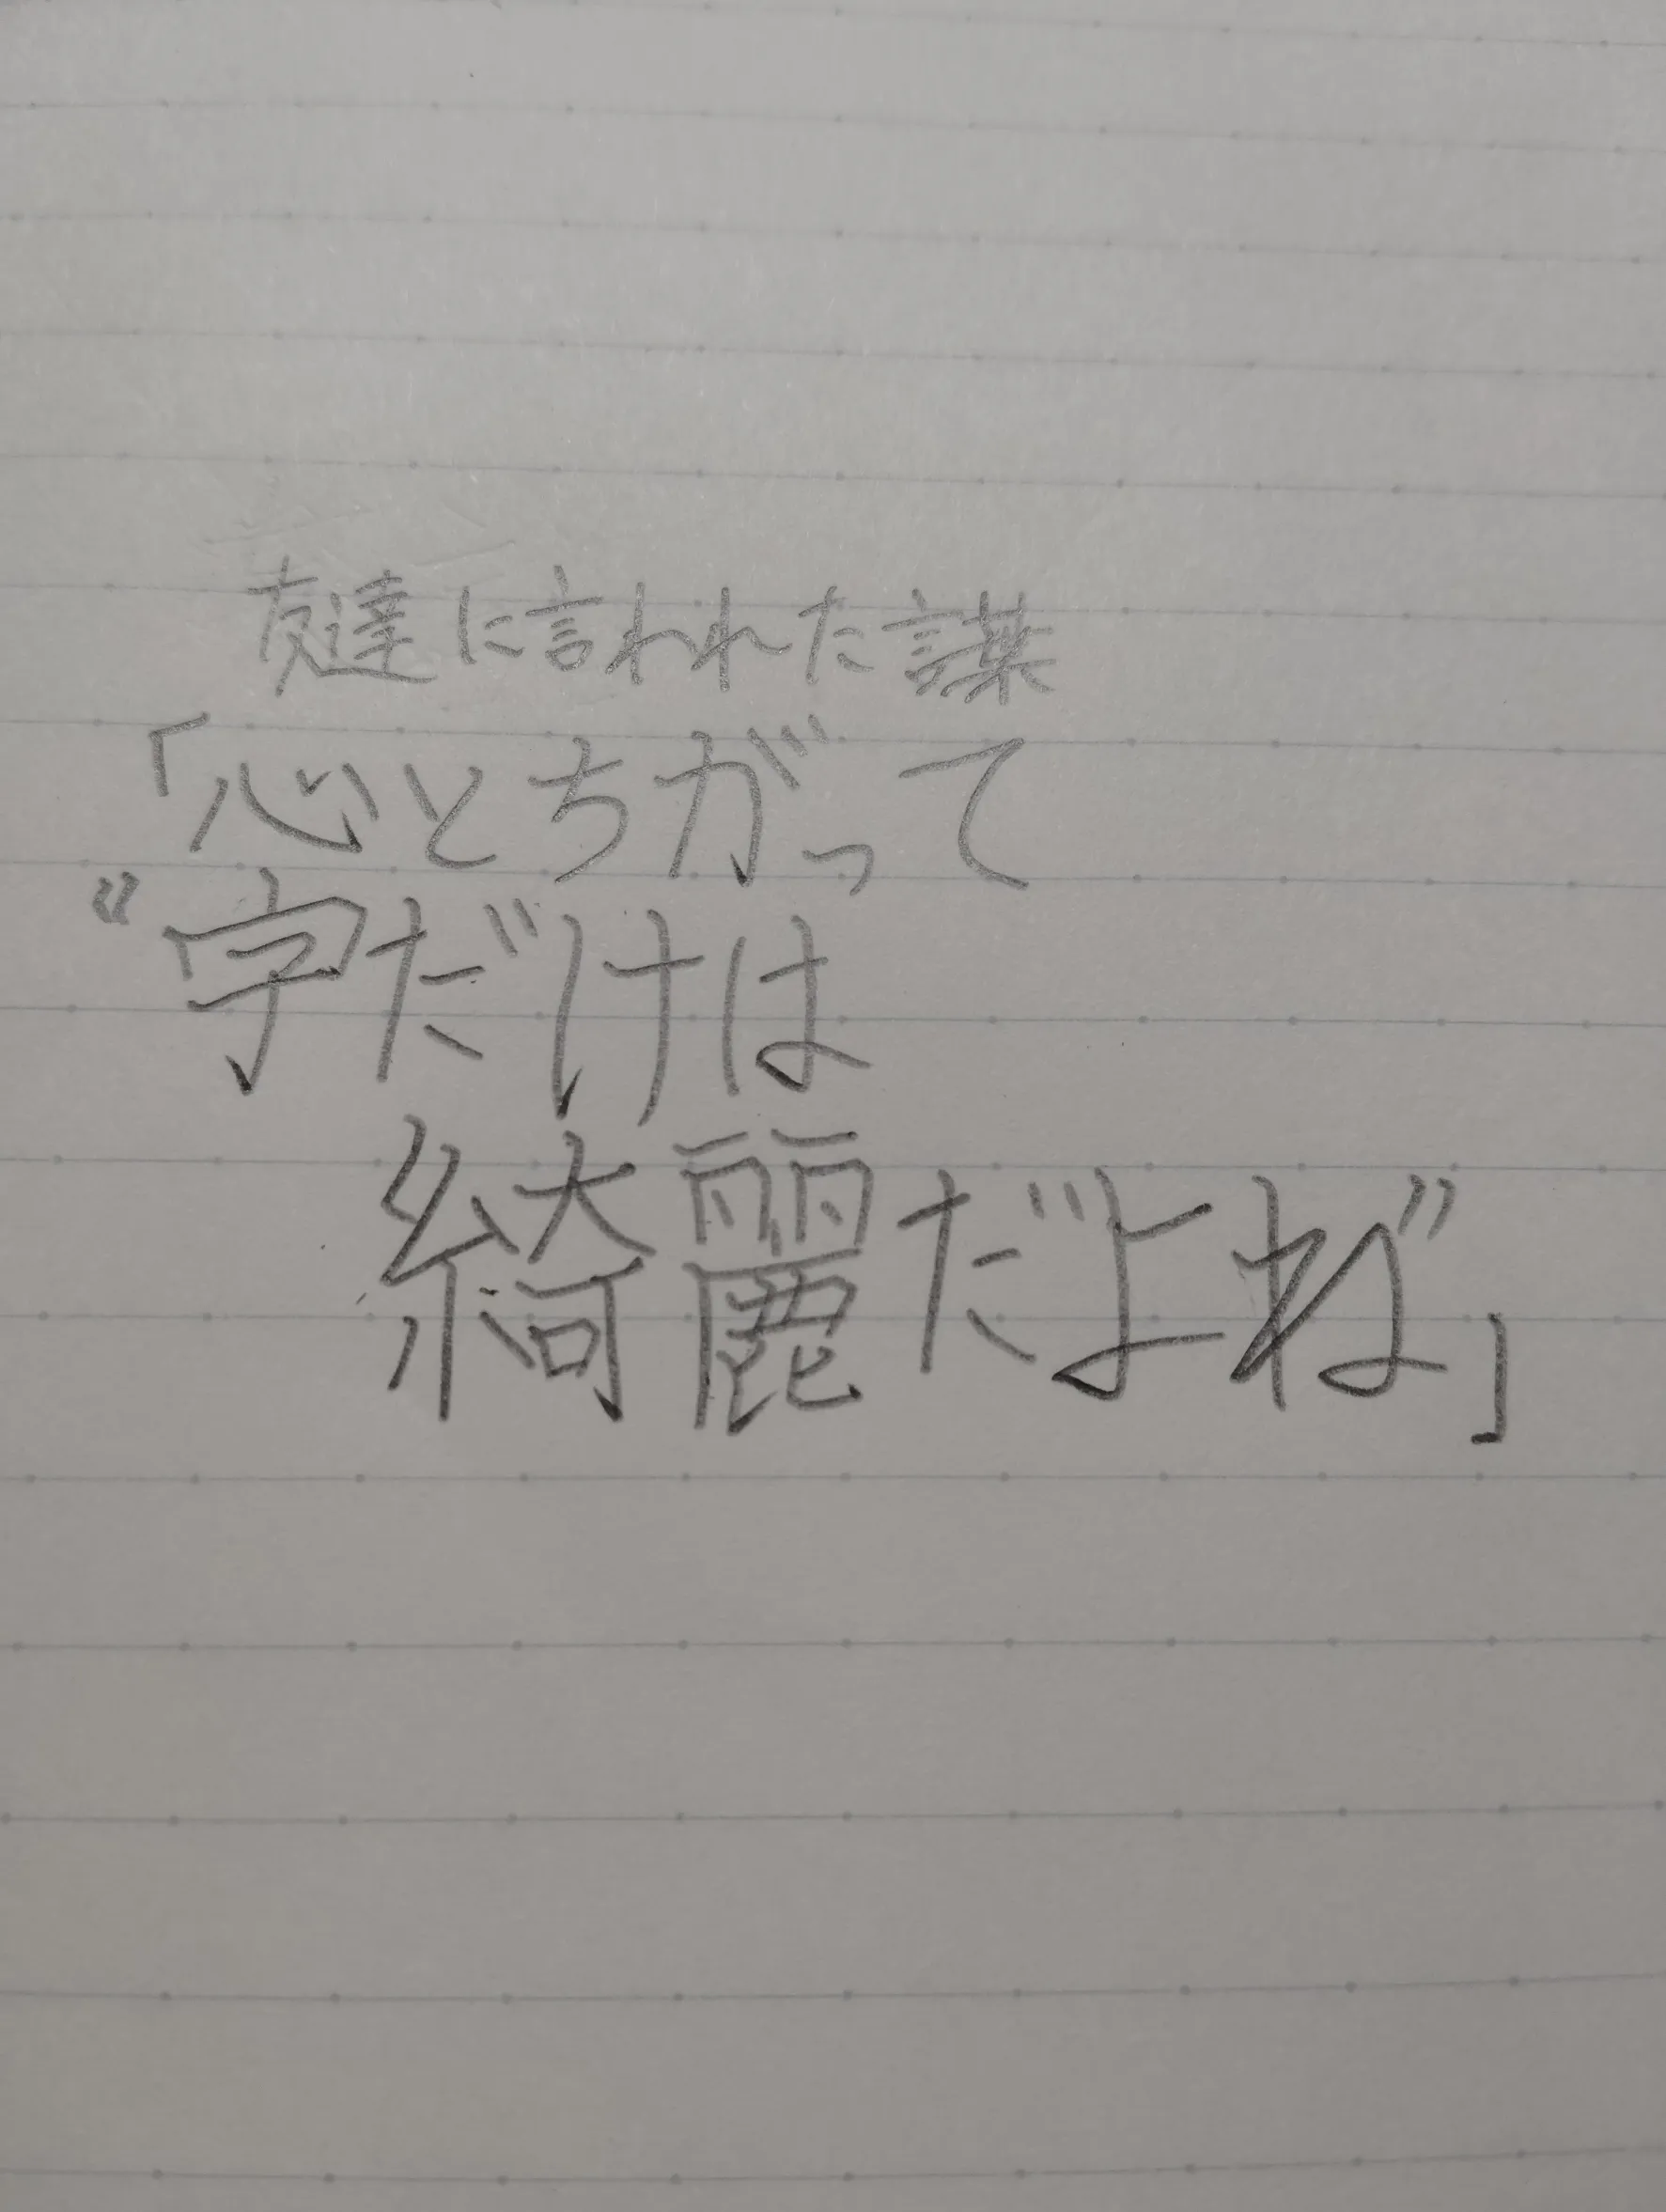 友達に言われた謀
「心とちがって
“字だけは
綺麗だよね”」